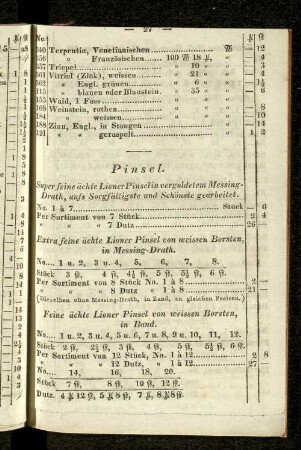 — 27 —
No.
340 Terpentin, Venetianischen
356 „ Französischen 100 ℔ 18
357 Triepel „ 10
361 Vitriol (Zink), weissen „ 21
362 „ Engl. grünen „ 6
„ blauen oder Blaustein „ 35
153 Waid, 1 Fass
168 Weinstein, rothen
184 „ weissen
188 Zinn, Engl., in Stangen
191 „ geraspelt
Pinsel.
Super feine ächte Lioner Pinsel in vergoldetem Messing-
Drath, aufs Sorgfältigste und Schönste gearbeitet.
No. 1 à 7 Stück 6
Per Sortiment von 7 Stück 2 4
„ „ 7 Dutz 26
Extra feine ächte Lioner Pinsel von weissen Borsten,
in Messing-Drath.
No. 1 u. 2, 3 u. 4, 5, 6, 7, 8.
Stück 3 4 5 5½ 6
Per Sortiment von 8 Stück No. 1 à 8 2
„ „ 8 Dutz „ 1 à 8 21
(Dieselben ohne Messing-Drath, in Band, zu gleichen Preisen.)
Feine ächte Lioner Pinsel von weissen Borsten,
in Band.
No. 1 u. 2, 3 u. 4, 5 u. 6, 7 u. 8, 9 u. 10, 11, 12.
Stück 2 2½ 3 4 5 5½ 6
Per Sortiment von 12 Stück, No. 1 à 12 2 8
„ „ 12 Dutz, „ 1 à 12 27
No. 14, 16, 18, 20.
Stück 7 8 10 12
Dutz. 4 12 5 8 7 8 8